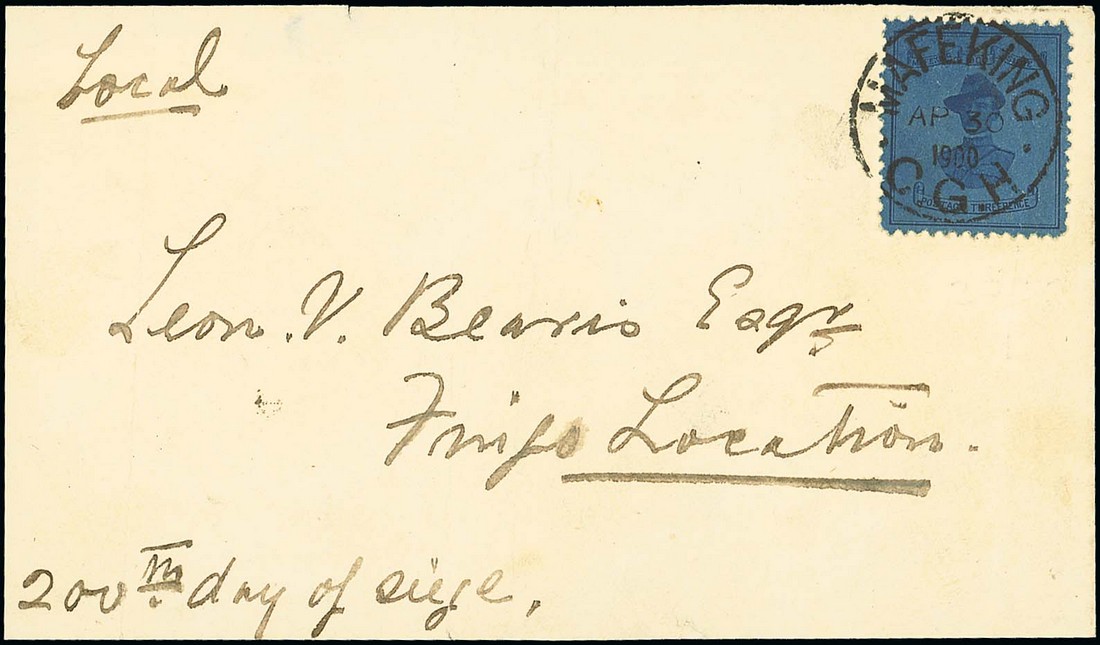 Local
MAFEKING
AP 30
1900
C.G.H.
POSTAGE THREEPENCE
Leon. V. Bearis Esqr
Fingo Location.
200th day of siege,